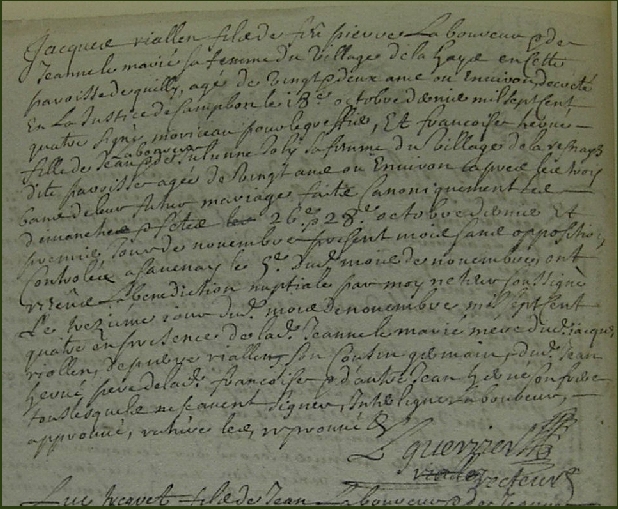 Jacques viallen fils de feu pierre Laboureur & de
Jeanne le mairé sa femme du village de la haye en cette
paroisse de quilly, agé de vingt & deux ans ou Environ, decreté
En La Justice de Campbon le 18e octobre dernier mil sept cent
quatre signé moriceau pour le greffier, Et françoise hervé
fille de Jean laboureur & de Julienne sa femme du village de la
dite paroisse agée de vingt ans ou Environ apres les trois
bans de leur futur mariage faits Canoniquement les
dimanches & feste 26e & 28e octobre dernier Et
premier Jour de novembre present mois sans opposition,
Controllé a Savenay le 5e dud. mois de novembre, ont
receu La benediction nuptiale par moy recteur soussigné
Le Jour dud. mois de novembre mil sept cent
quatre en presence de lad. Jeanne le mairé mere dud. Jacques
viallen, de pierre viallen son Cousin germain, & dud. Jean
hervé pere de lad. françoise, & d'autre Jean hervé son frere
tous lesquels ne scavent signer, Interligne laboureur,
approuvé, &
L guerrier
recteur
Luc fils de Jean Laboureur & de Jeanne